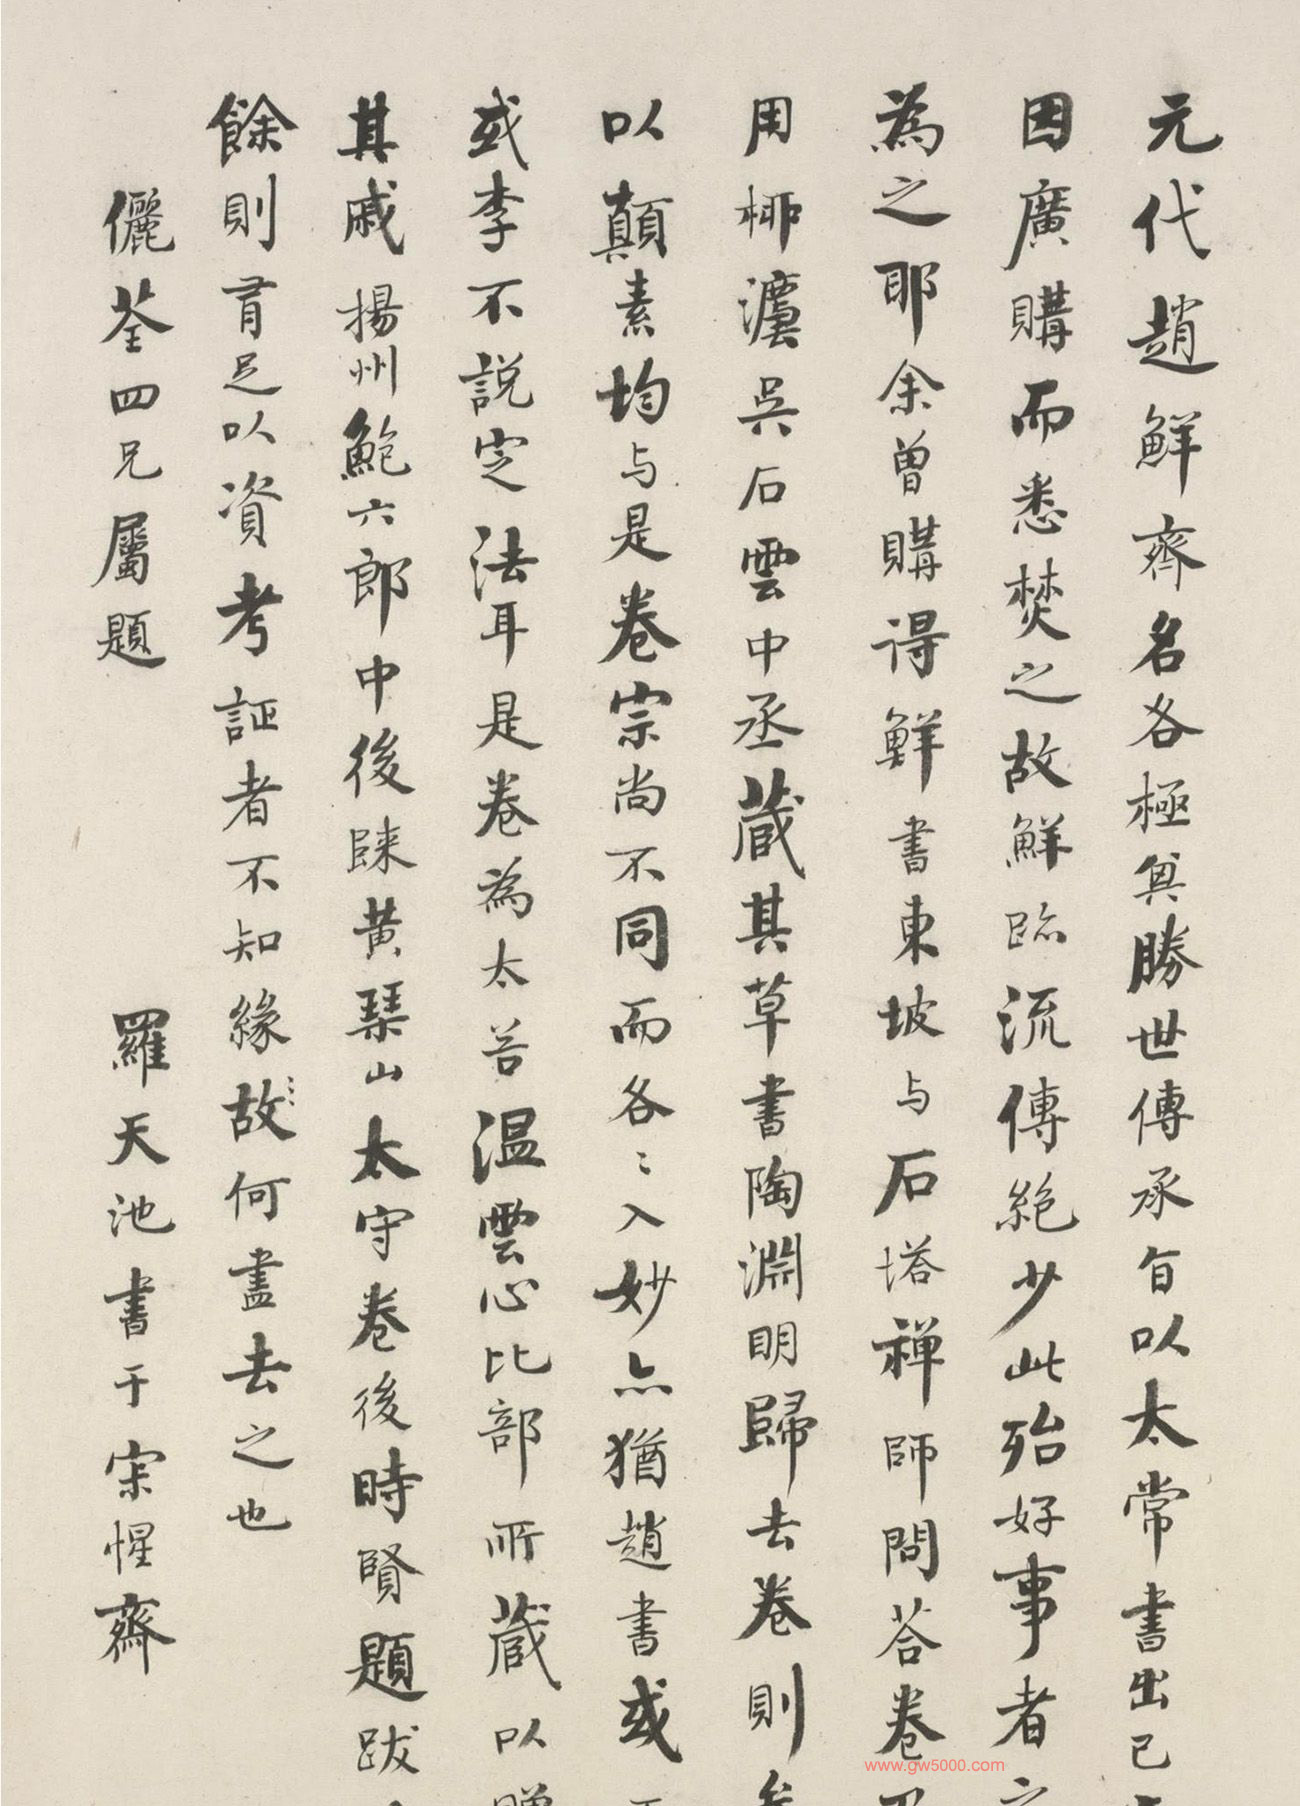 元代趙鮮齊名各極其勝世傳承旨以太常書出己
因廣購而悉焚之故鮮跡流傳絕少此殆好事者
為之耶余曾購得鮮書東坡与石塔禅師問荅卷
用椰瓢吳石雲中丞蔵其草書陶淵明歸去卷則
以顛素均与是卷宗尚不同而各〻入妙亦猶趙書或
或李不說定法耳是卷為太谷温雲心比部所蔵以
其戚揚州鮑六郎中後歸黄琴山太守卷後時賢題跋
餘則肎足以資考証者不知緣故何盡去之也
儷荃四兄屬題
羅天池書于宗惺齋
www.gw5000.com